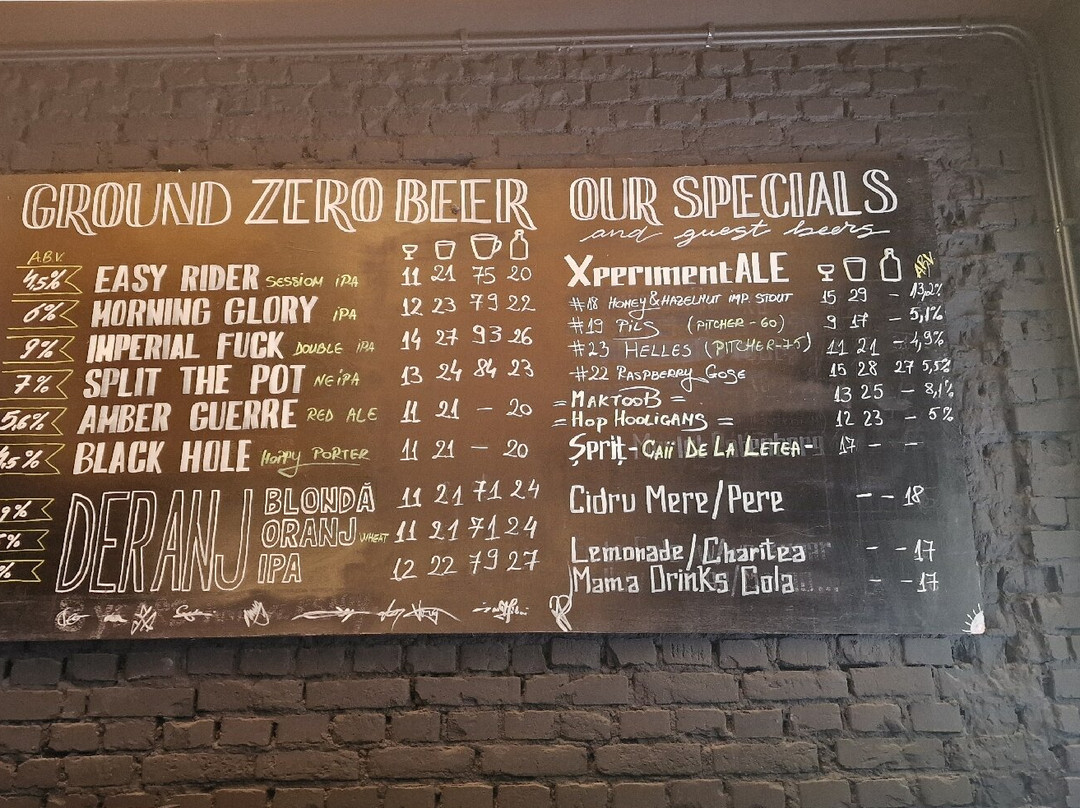 GROUND ZERO BEER
A.B.V.
4,5% EASY RIDER SESSION IPA 11 21 75 20
6% MORNING GLORY IPA 12 23 79 22
9% IMPERIAL FUCK DOUBLE IPA 14 27 93 26
7% SPLIT THE POT NEIPA 13 24 84 23
5,6% AMBER GUERRE RED ALE 11 21 - 20
4,5% BLACK HOLE HOPPY PORTER 11 21 - 20
DERANJ
9% BLONDĂ 11 21 71 24
% ORANJ WHEAT 11 21 71 24
% IPA 12 22 79 27
OUR SPECIALS
and guest beers
XperimentALE ABV
#18 HONEY & HAZELNUT IMP. STOUT 15 29 - 13,2%
#19 PILS (PITCHER-60) 9 17 - 5,1%
#23 HELLES (PITCHER-75) 11 21 - 4,9%
#22 RASPBERRY GOSE 15 28 27 5,5%
=MAKTOOB= 13 25 - 8,1%
=HOP HOOLIGANS= 12 23 - 5%
Şpriţ-CAII DE LA LETEA- 17 - -
Cidru Mere/Pere - - 18
Lemonade/Charitea - - 17
Mama Drinks/Cola - - 17